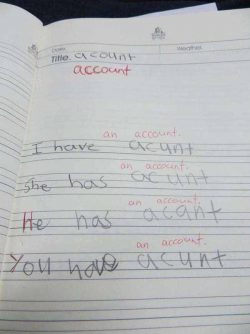 Date:
Weather:
Title: acount
account
an account.
I have acunt
an account.
She has acunt
an account.
He has acant
an account.
You have acunt